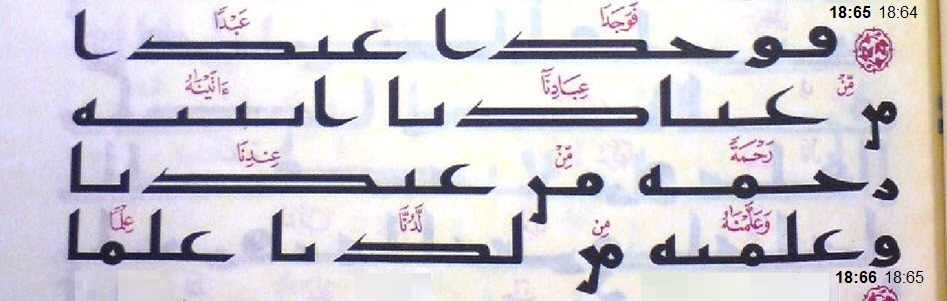 18:65 18:64
فَوَجَدَا عَبْدًا
فوجدا عبدا
مِّنْ عِبَادِنَآ ءَاتَيْنَٰهُ
من عبادنا اتينه
رَحْمَةً مِّنْ عِندِنَا
رحمه من عندنا
وَعَلَّمْنَٰهُ مِن لَّدُنَّا عِلْمًا
وعلمنه من لدنا علما
18:66 18:65